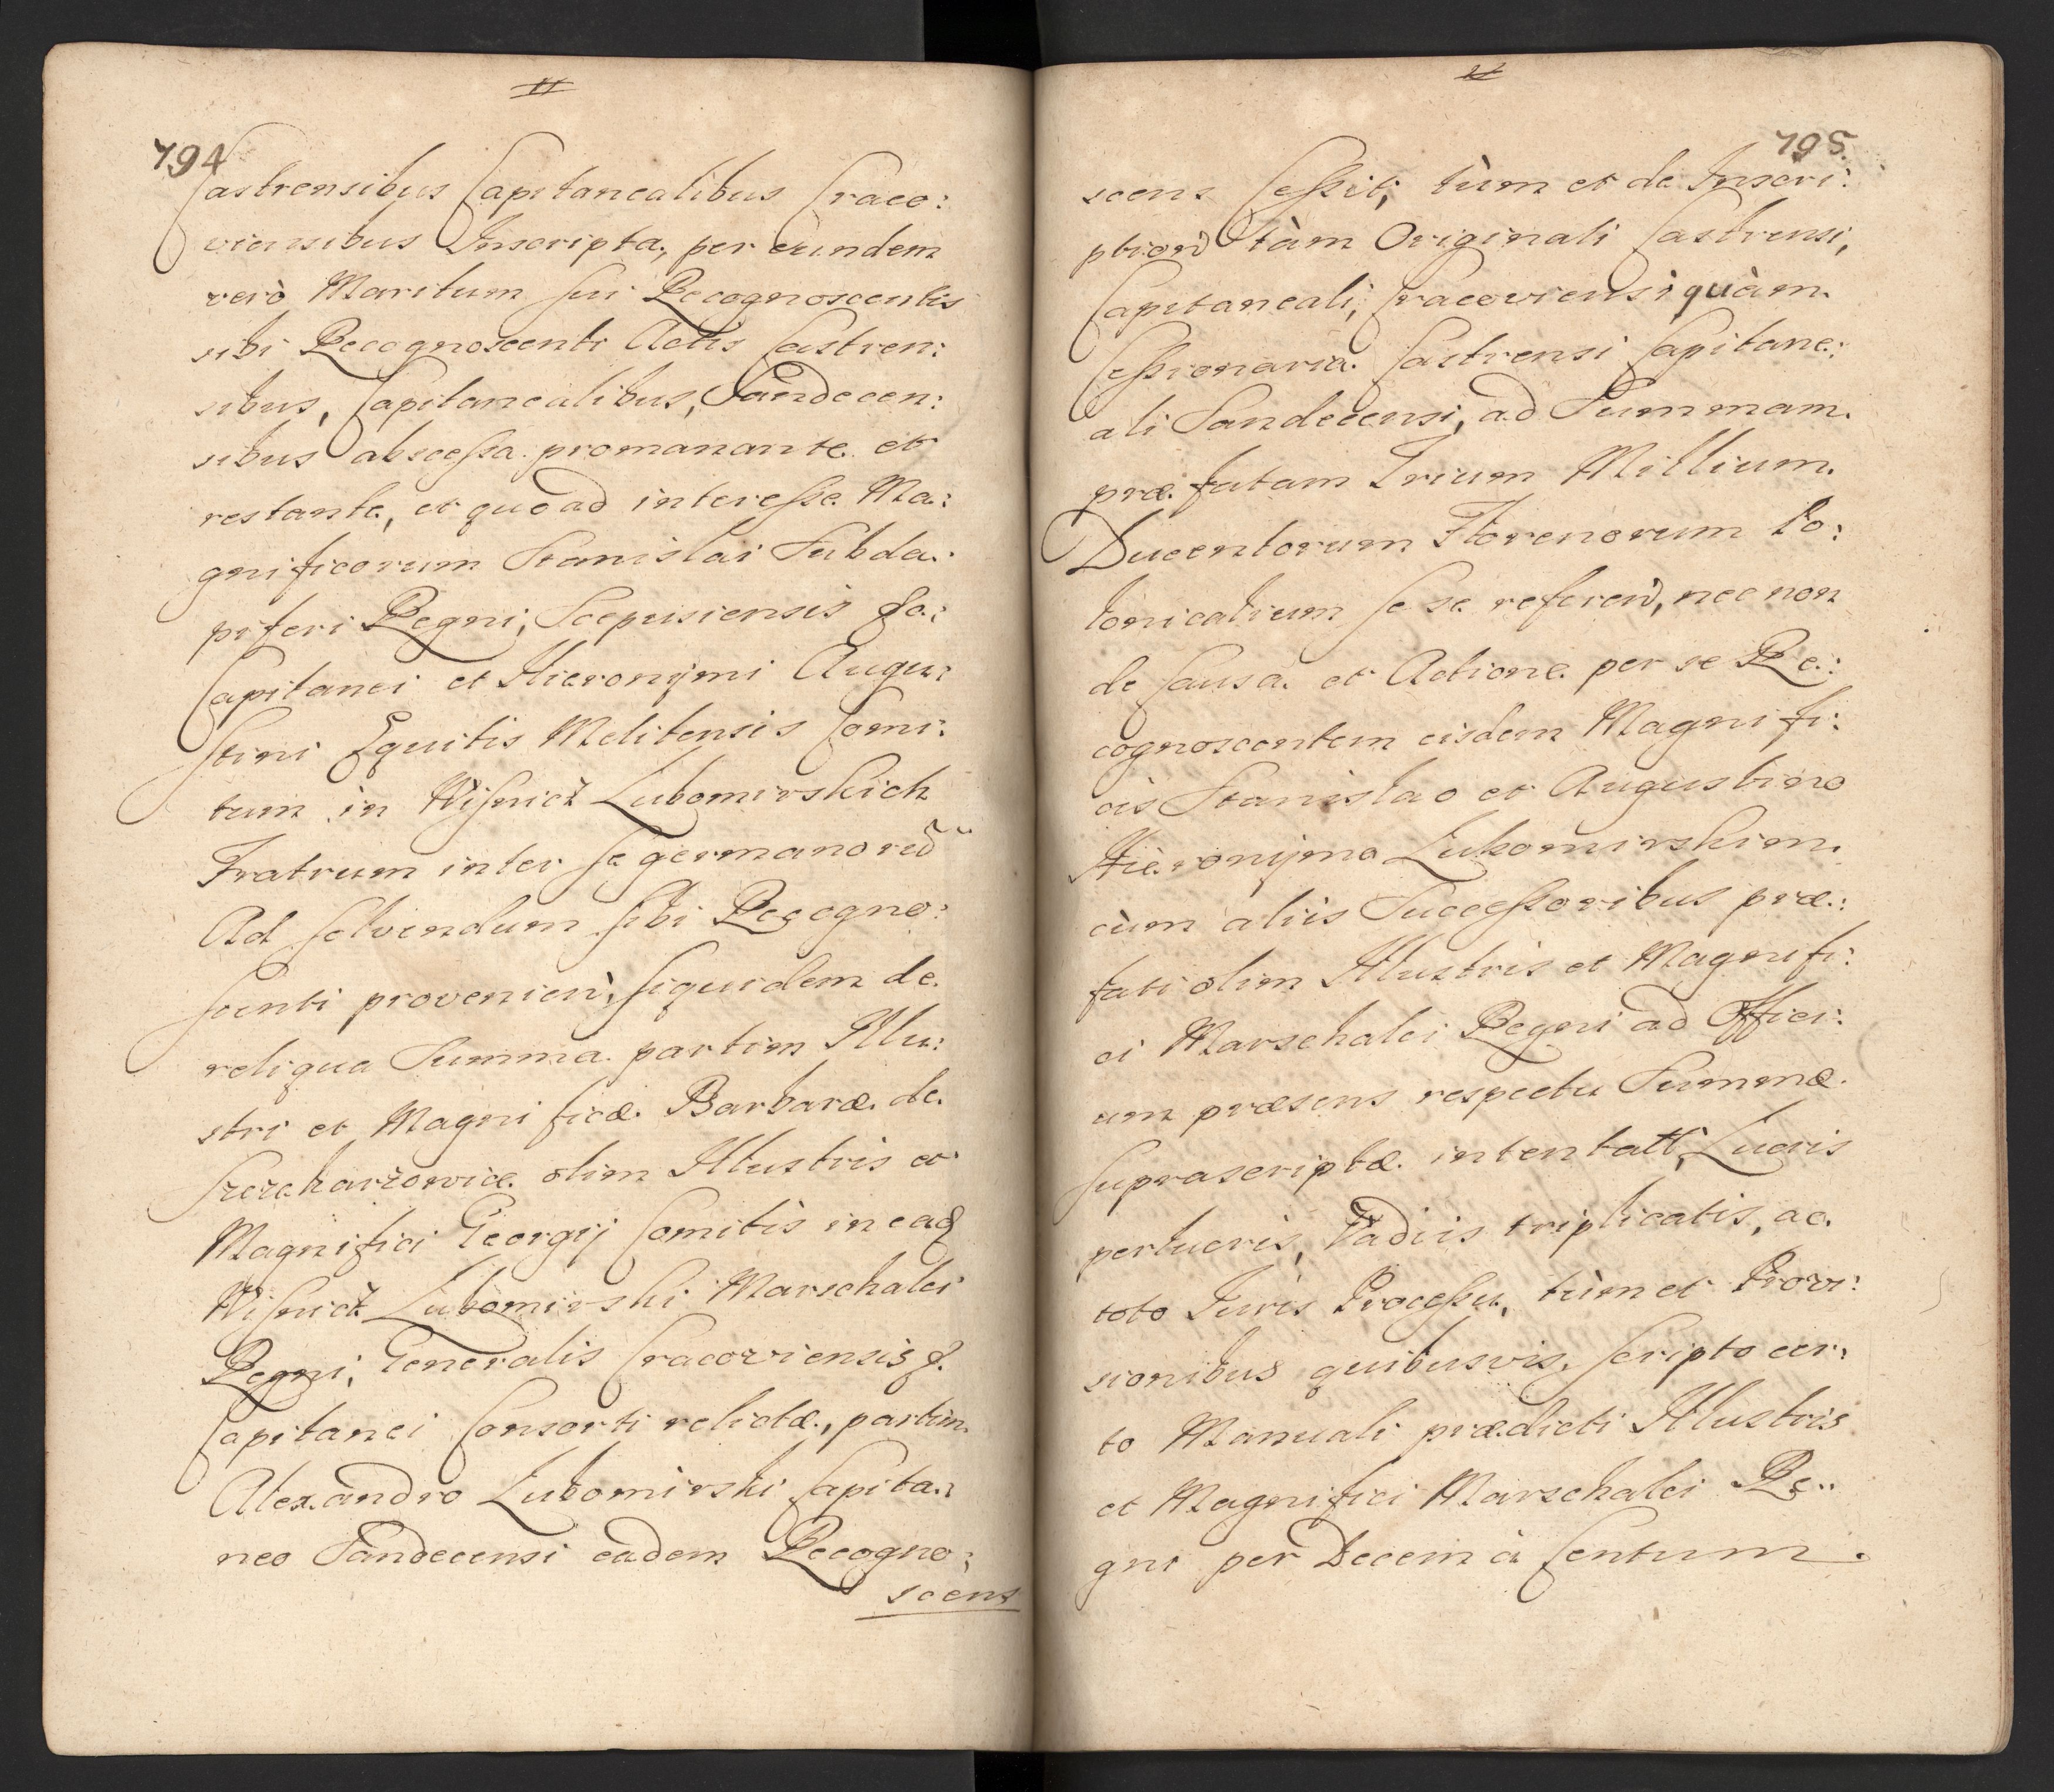 11
794
Castrensibus Capitanealibus Craco:
viensibus Inscripta, per eundem
verò Maritum sui Recognoscentis
sibi Recognoscenti Actis Castren:
sibus, Capitanealibus, Sandecen:
sibus abscessa promanante et
restante, et quoad interesse Ma:
gnificorum Stanislai Subda:
piferi Regni, Scepusiensis &c:
Capitanei et Hieronÿmi Augu:
stini Equitis Melitensis Comi:
tum in Wisnicz Lubomirskich
Fratrum inter se germanorũ
Ad solvendum sibi Recogno:
scenti provenien̄, siquidem de
reliqua Summa partim Illu:
stri et Magnificæ Barbaræ de
Szczekarzowice olim Illustris et
Magnifici Georgij Comitis in eaḍ
Wisnicz Lubomirski Marschalci
Regni, Generalis Cracoviensis &.
Capitanei Consorti relictæ, partim
Alexandro Lubomirski Capita:
neo Sandecensi eadem Recogno:
scens
795.
scens Cessit, tùm et de Inscri:
ption̄ tàm Originali Castrensi,
Capitaneali, Cracoviensi quàm
Cessionaria Castrensi Capitane:
ali Sandecensi, ad Summam
præfatam Trium Millium
Ducentorum Florenorum Po:
lonicalium sese referen̄, nec non
de Causa et Actione per se Re:
cognoscentem eisdem Magnifi:
cis Stanislao et Augustino
Hieronÿmo Lubomirskim
cùm aliis Successoribus præ:
fati olim Illustris et Magnifi:
ci Marschalci Regni ad Offici:
um præsens respectu Summæ
suprascriptæ intentatt, Lucris
perlucris, Vadiis triplicatis, ac
toto Iuris Processu, tùm et Provi:
sionibus quibusvis, scripto cer:
to Manuali prædicti Illustris
et Magnifici Marschalci Re:
gni per Decem à Centum